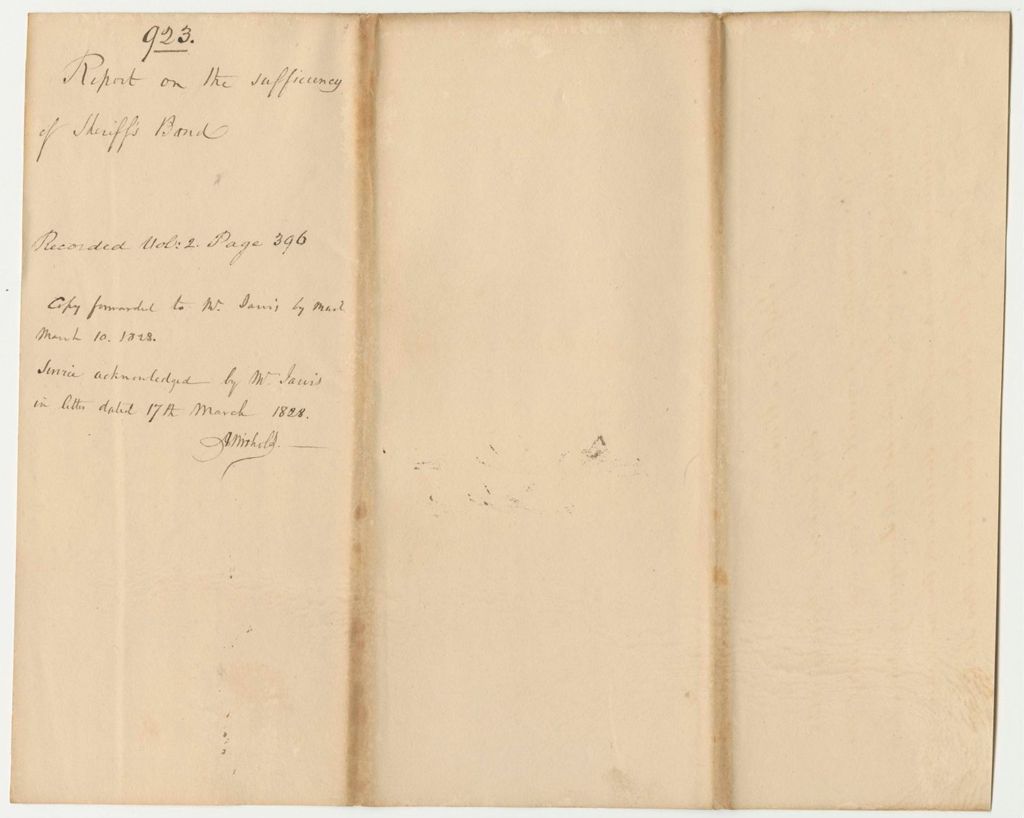 923.
Report on the sufficiency
of Sheriff's Bond
Recorded Vol: 2. Page 396
Copy forwarded to Mr. Jarvis by mail
March 10. 1828.
Service acknowledged by Mr. Jarvis
in letter dated 17th March 1828.